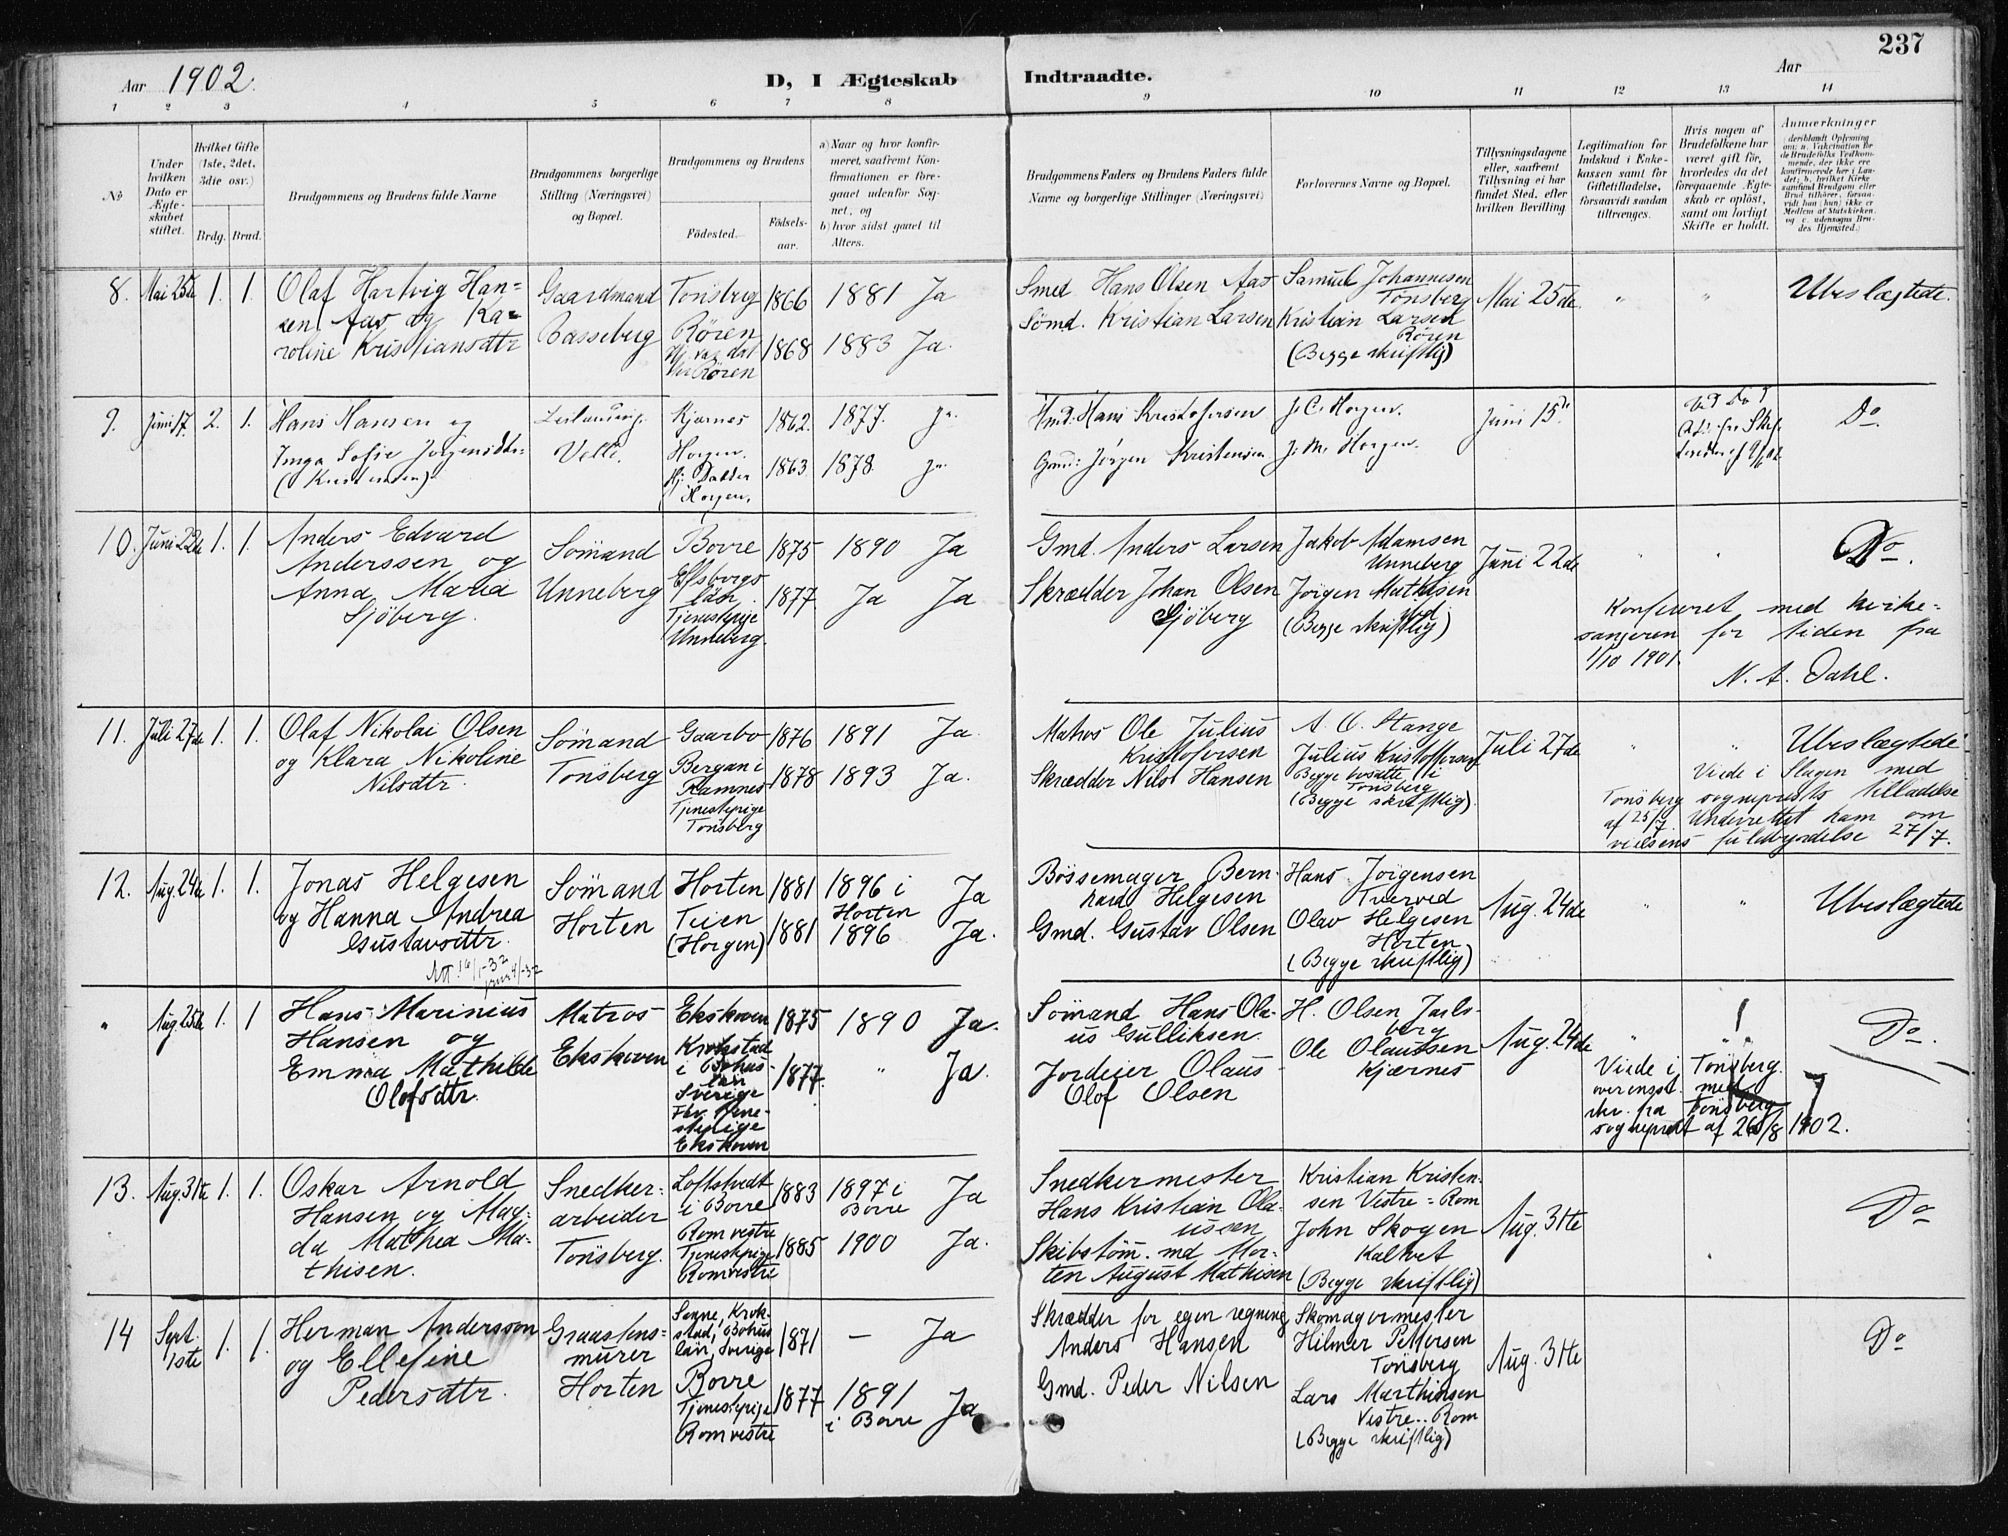 237
Aar 1902.
D, I Ægteskab Indtraadte.
Aar
1 2 3 4 5 6 7 8 9 10 11 12 13 14
No
Under hvilken Dato er Ægteskabet stiftet.
Hvilket Gifte (1ste, 2det, 3die osv.)
Brdg. Brud.
Brudgommens og Brudens fulde Navne
Brudgommens borgerlige Stilling (Næringsvei) og Bopæl.
Brudgommens og Brudens
Fødested.
Fødselsaar.
a) Naar og hvor konfirmeret, saafremt Konfirmationen er foregaaet udenfor Sognet, og
b) hvor sidst gaaet til Alters.
Brudgommens Faders og Brudens Faders fulde Navne og borgerlige Stillinger (Næringsvei)
Forlovernes Navne og Bopæl.
Tillysningsdagene eller, saafremt Tillysning ei har fundet Sted, efter hvilken Bevilling
Legitimation for Indskud i Enkekassen samt for Giftetilladelse, forsaavidt saadan tiltrænges.
Hvis nogen af Brudefolkene har været gift før, hvorledes da det foregaaende Ægteskab er opløst, samt om lovligt Skifte er holdt.
Anmærkninger
8. Mai 25de 1. 1. Olaf Hartvig Hansen Aas og Karoline Kristiansdtr
Gaardmand Basseberg
Tønsberg 1866 1881 Ja
Røren 1868 1883 Ja.
Røren
Smed Hans Olsen Aas
Sømd. Kristian Larsen
Samuel Johannesen Tønsberg
Kristian Larsen Røren
(Begge skriftlig)
Mai 25de " " Ubeslægtede.
9. Juni 17. 2. 1. Hans Hansen og
Inga Sofie Jørgensdtr
(Kristensen)
Velle.
Kjærnes 1862. 1877. Ja.
Horgen. 1863 1878. Ja.
Horgen.
Hans Kristofersen
Jørgen Kristensen
J. C. Horgen.
J. M. Horgen.
Juni 15de
Do.
10. Juni 22de 1. 1. Anders Edvard
Anderssen og
Anna Maria
Sjöberg.
Sømand
Unneberg
Borre 1875 1890 Ja
Elfsborgs län 1877 Ja Ja
Tjenestepige
Unneberg.
Gmd. Anders Larsen
Skrædder Johan Olsen
Sjöberg
Jakob Adamsen
Unneberg
Jørgen Mathisen
(Begge skriftlig)
Juni 22de " " Do.
Konfereret med kirke-
sangeren for tiden fra
1/10 1901.
N. A. Dahl.
11. Juli 27de 1. 1. Olaf Nikolai Olsen
og Klara Nikoline
Nilsdtr.
Sømand
Tønsberg
Gaarbo 1876 1891 Ja.
Bergan i 1878 1893 Ja.
Ramnes
Tjenestepige
Tønsberg
Matros Ole Julius
Kristofersen
Skrædder Nils Hansen
A. O. Stange
Julius Kristoffersen
Begge bosatte i
Tønsberg
(Begge skriftlig).
Juli 27de " " Ubeslægtede
Viede i Slagen med
Tønsberg sogneprests tilladelse
af 25/7. Underrettet ham om
vielsens fuldbyrdelse 27/7.
12. Aug. 24de 1. 1. Jonas Helgesen
og Hanna Andrea
Gustavsdtr.
Sømand
Horten
Horten 1881 1896 i Horten Ja
Teien 1881 1896 Ja.
(Horgen)
Bøssemager Bern-
hard Helgesen
Gmd. Gustav Olsen
Hans Jørgensen
Tverved
Olav Helgesen
Horten
(Begge skriftlig)
Aug. 24de " " Ubeslægtede
" Aug. 25de 1. 1 Hans Marinius
Hansen og
Emma Mathilde
Olofsdtr.
Matros
Ekskoven
Ekskoven 1875 1890 Ja.
Krokstad 1877. " Ja.
i Bohus-
län
Sverige
Ekskoven
Sømand Hans Ola-
us Gulliksen.
Jordeier Olaus
Olof Olsen
H. Olsen Jarls-
berg
Ole Olaussen
Kjærnes
Aug. 24de Do.
Viede i Tønsberg.
overensst. med
skr. fra Tønsberg
sogneprest af 26/8 1902.
13. Aug. 31te 1. 1. Oskar Arnold
Hansen og Mag-
da Mathea Ma-
thisen.
Snedker-
arbeider
Tønsberg.
Loftstvedt 1883 1897 i Borre Ja
i Borre
Romvestre 1885 1900 Ja.
Tjenestepige
Romvestre
Snedkermester
Hans Kristian Ola-
ussen
Skibstøm. md Mor-
ten August Mathisen
Kristian Kristen-
sen Vistre-Rom
John Skogen
Kalvet
(Begge skriftlig)
Aug. 31te Do
14 Sept. 1ste 1. 1. Herman Andersson
og Ellefine
Pedersdtr.
Graastens-
murer
Horten
Krok- 1871 — Ja
stad, Bohus
län, Sverige
Borre 1877 1891 i Borre Ja
Tjenestepige
Romvestre
Skrædder for egen regning
Anders Hansen
Gmd. Peder Nilsen
Skomagermester
Hilmer Pettersen
Tønsberg
Lars Marthinsen
Vestre Rom
(Begge skriftlig)
Aug. 31te Do